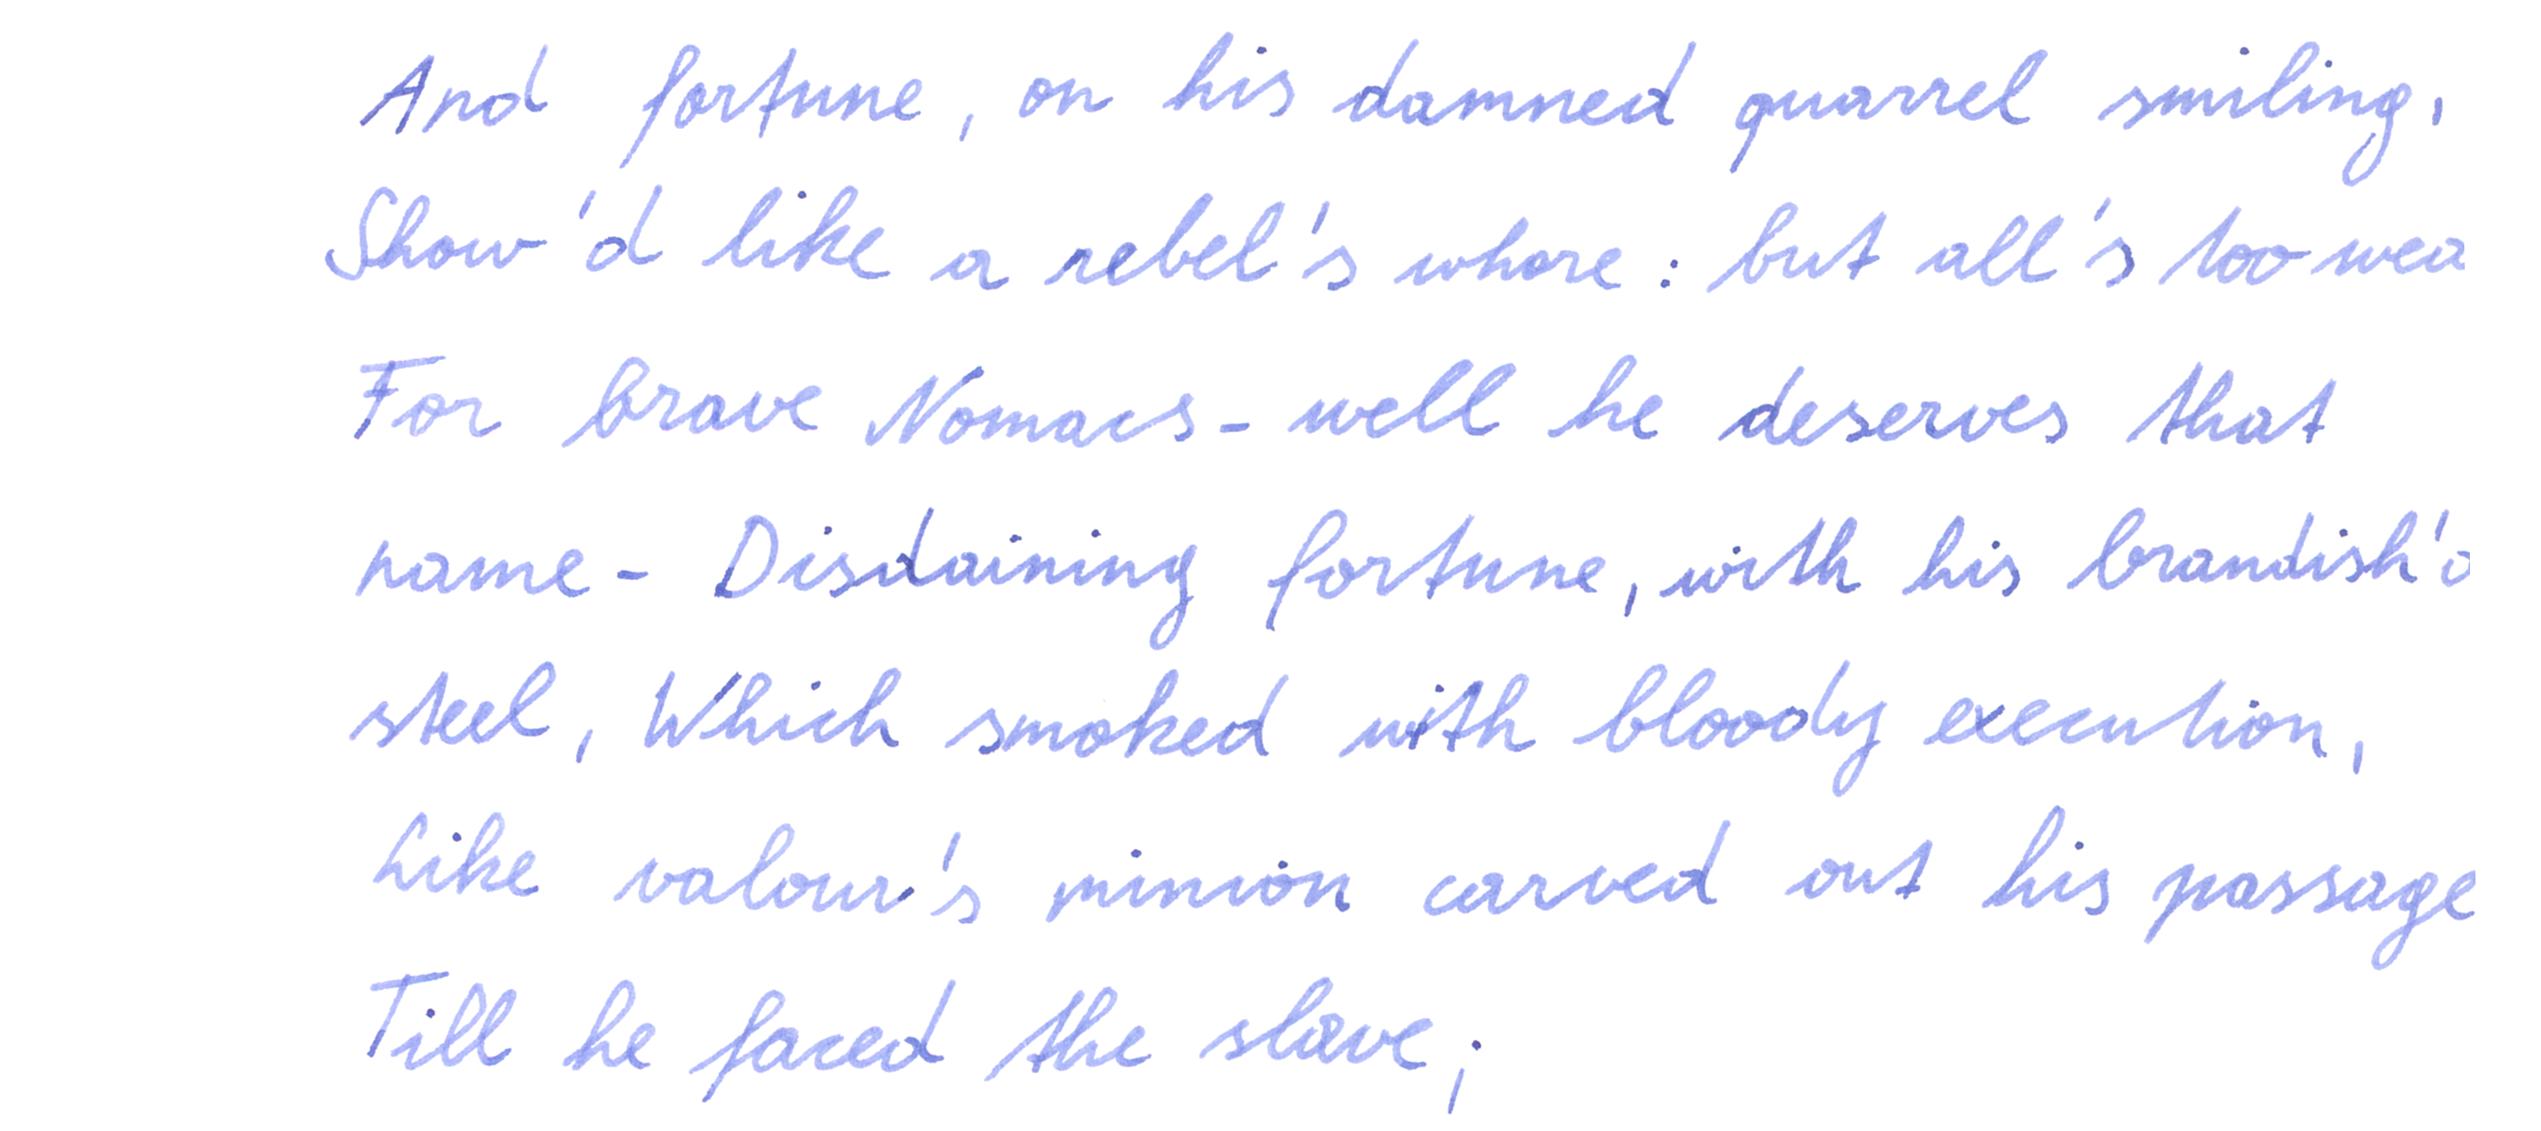 And fortune, on his damned quarrel smiling,
Show'd like a rebel's whore: but all's too wea
For brave Nomacs - well he deserves that
name - Disdaining fortune, with his brandish'd
steel, Which smoked with bloody execution,
Like valour's minion carved out his passage
Till he faced the slave;